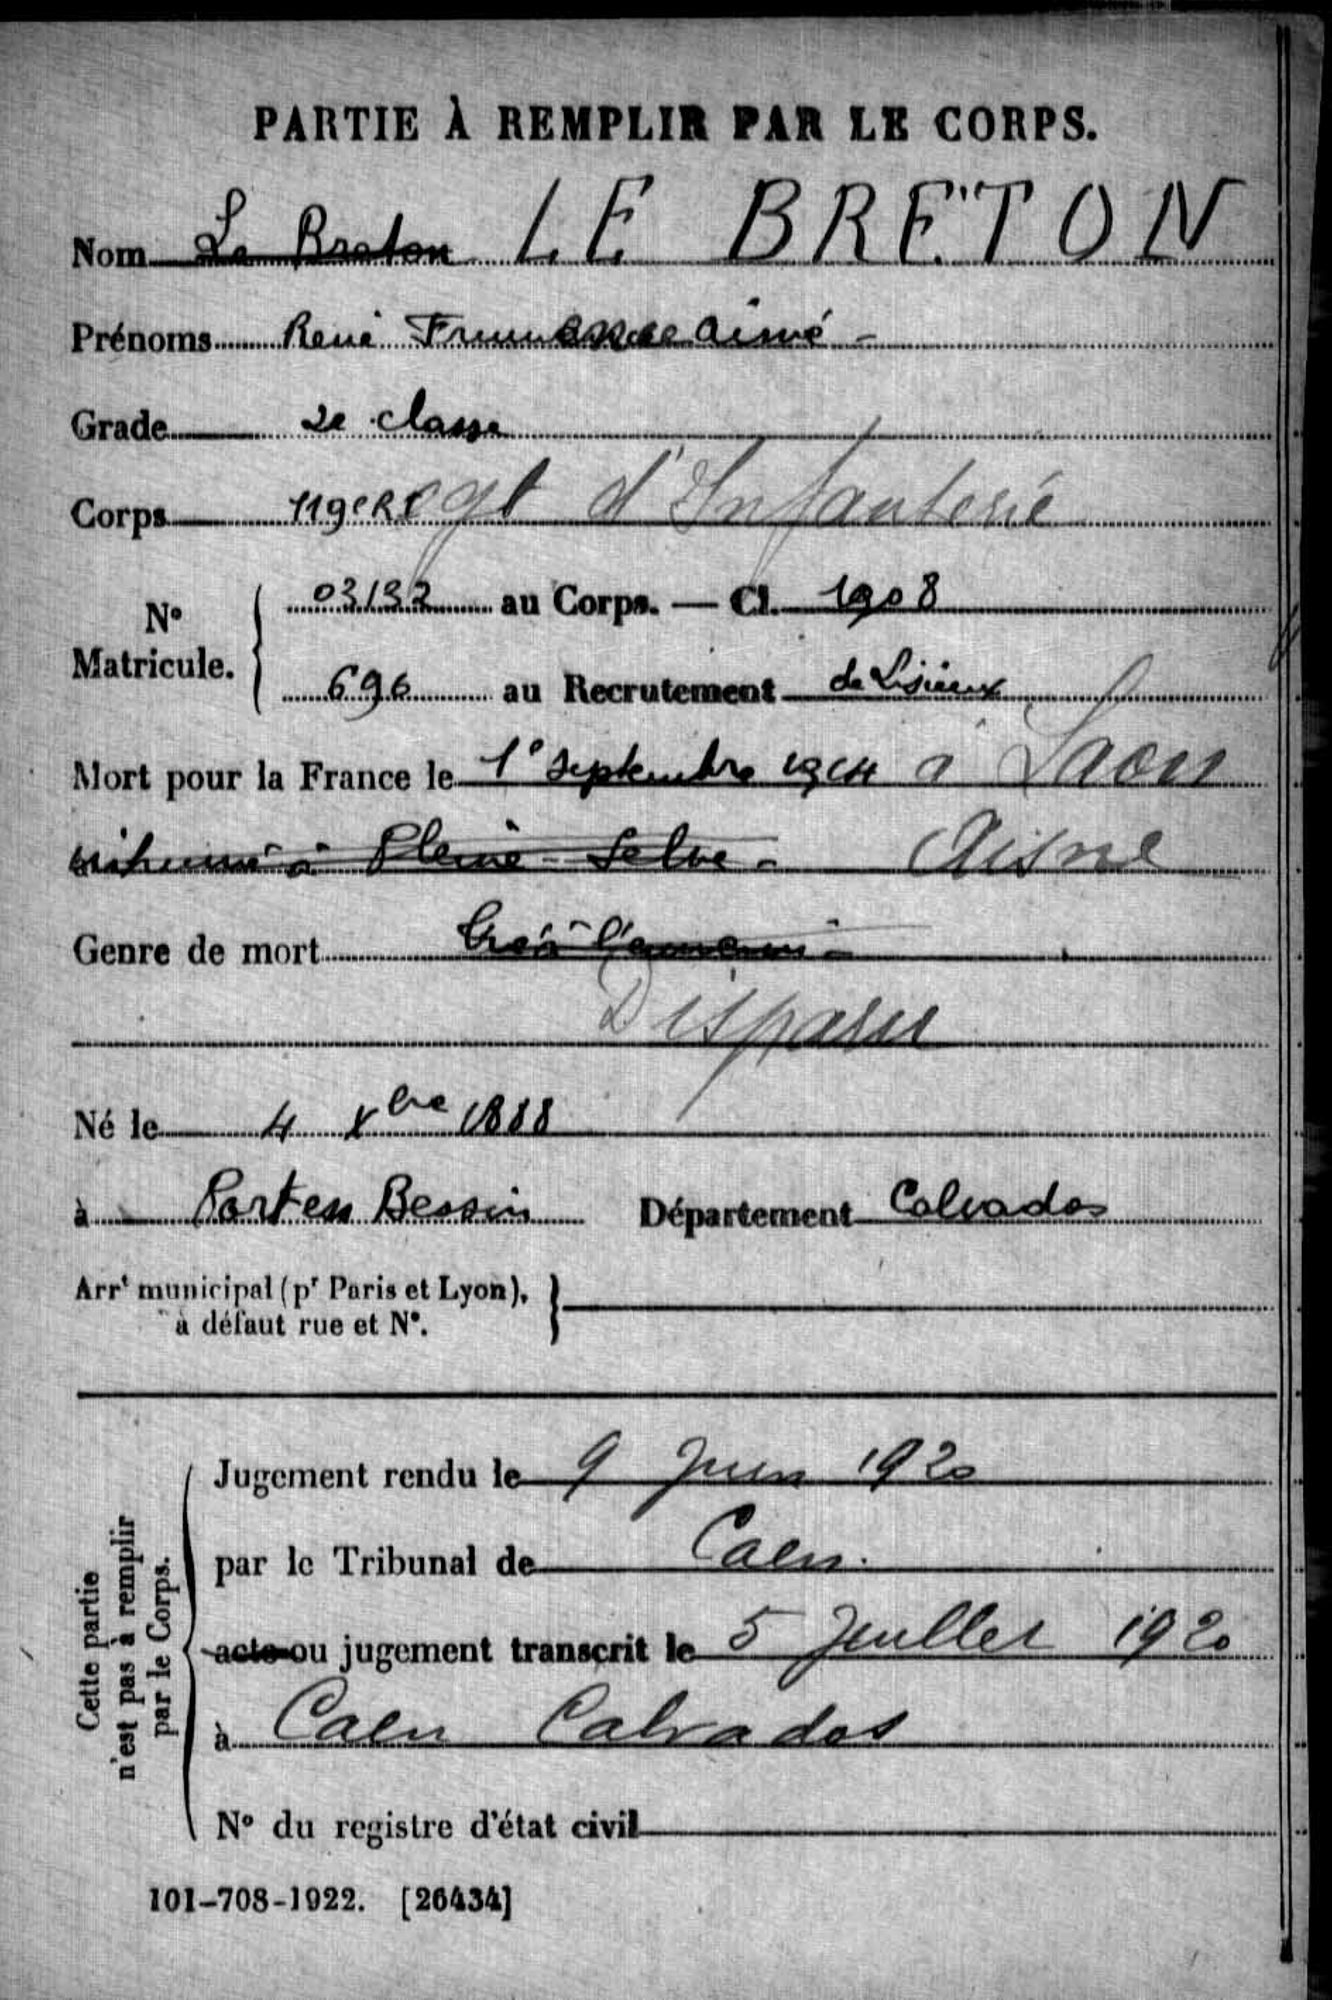 PARTIE À REMPLIR PAR LE CORPS.
Nom Le Breton LE BRETON
Prénoms René Aimé -
Grade 2e classe
Corps 119e Regt d'Infanterie
N° Matricule. 03132 au Corps. — Cl. 1908
696 au Recrutement de Lisieux
Mort pour la France le 1er septembre 1914 à Laon
inhumé à Pleine-Selve - Aisne
Genre de mort Tué à l'ennemi -
Disparu
Né le 4 Xbre 1888
à Port en Bessin Département Calvados
Arrt municipal (pr Paris et Lyon),
à défaut rue et N°.
Cette partie
n'est pas à remplir
par le Corps.
Jugement rendu le 9 Juin 1920
par le Tribunal de Caen.
acte ou jugement transcrit le 5 Juillet 1920
à Caen Calvados
N° du registre d'état civil
101-708-1922. [26434]